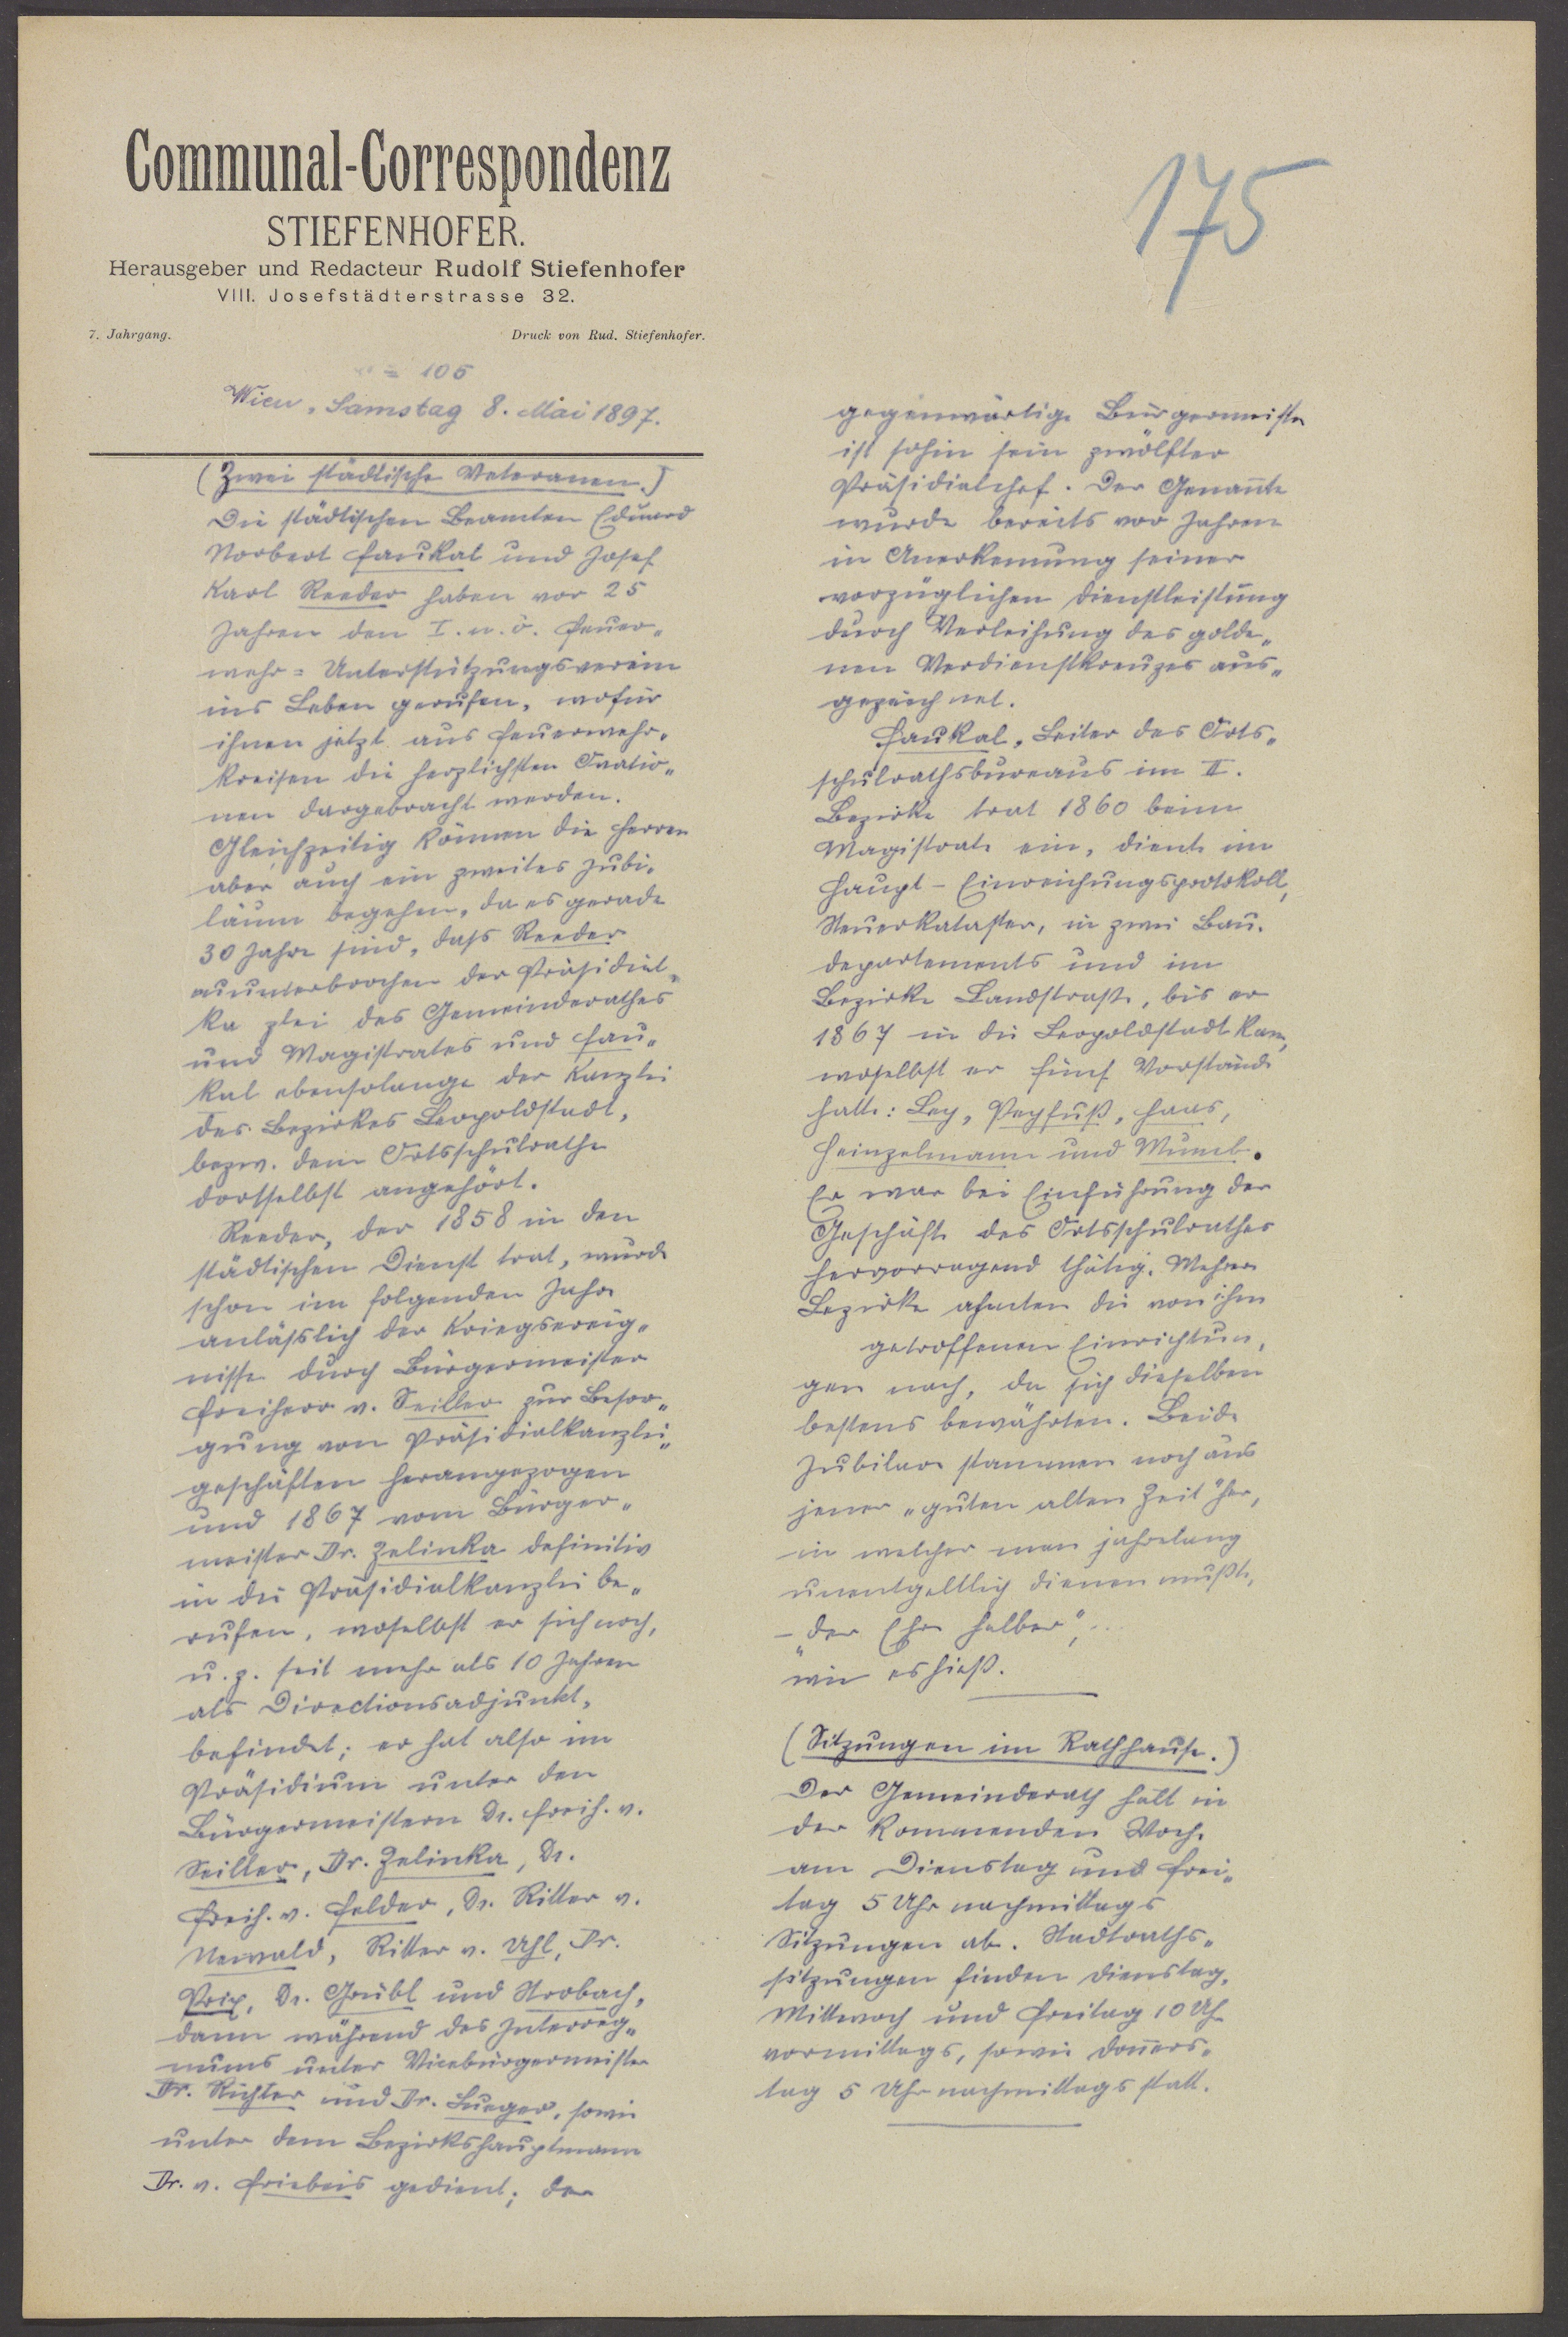 Communal-Correspondenz
STIEFENHOFER.
Herausgeber und Redacteur Rudolf Stiefenhofer
VIII. Josefstädterstrasse 32.
7. Jahrgang. Druck von Rud. Stiefenhofer.
175
105
Wien, Samstag 8. Mai 1897.
(Zwei städtische Veteranen.)
Die städtischen Beamten Eduard
Norbert Faukal und Josef
Karl Reeder haben vor 25
Jahren den I. n. ö. Feuer„
wehr = Unterstützungsverein
ins Leben gerufen, wofür
ihnen jetzt aus Feuerwehr„
kreisen die herzlichsten Ovatio„
nen dargebracht werden.
Gleichzeitig können die Herren
aber auch ein zweites Jubi„
läum begehen, da es gerade
30 Jahre sind, daß Reeder
ununterbrochen der Präsidial„
kazlei des Gemeinderathes
und Magistrates und Fau„
kal ebensolange der Kanzlei
des Bezirkes Leopoldstadt,
bezw. dem Ortsschulrathe
dortselbst angehört.
Reeder, der 1858 in den
städtischen Dienst trat, wurde
schon im folgenden Jahre
anläßlich der Kriegsereig„
nisse durch Bürgermeister
Freiherr v. Seiller zur Besor„
gung von Präsidialkanzlei„
geschäften herangezogen
und 1867 vom Bürger„
meister Dr. Zelinka definitiv
in die Präsidialkanzlei be„
rufen, woselbst er sich noch,
u. z. seit mehr als 10 Jahren
als Directionsadjunkt,
befindet; er hat also im
Präsidium unter den
Bürgermeistern Dr. Freih. v.
Seiller, Dr. Zelinka, Dr.
Freih. v. Felder, Dr. Ritter v.
Newald, Ritter v. Uhl, Dr.
Prix, Dr. Grübl und Strobach,
dann während des Interreg„
nums unter Vicebürgermeister
Dr. Richter und Dr. Lueger, sowie
unter dem Bezirkshauptmann
Dr. v. Friebeis gedient; der
gegenwärtige Bürgermeister
ist sohin sein zwölfter
Präsidialchef. Der Genan̄te
wurde bereits vor Jahren
in Anerkennung seiner
vorzüglichen Dienstleistung
durch Verleihung des golde„
nen Verdienstkreuzes aus„
gezeichnet.
Faukal, Leiter des Orts„
schulrathsbureaus im II.
Bezirke trat 1860 beim
Magistrate ein, diente im
Haupt-Einreichungsprotokoll,
Steuerkataster, in zwei Bau„
departements und im
Bezirke Landstraße, bis er
1867 in die Leopoldstadt kam,
woselbst er fünf Vorstände
hatte: Ley, Pechfuß, Haas,
Heinzelmann und Wumb.
Er war bei Einführung der
Geschäfte des Ortsschulrathes
hervorragend thätig. Mehrere
Bezirke ahmten die von ihm
getroffenen Einrichtun„
gen nach, da sich dieselben
bestens bewährten. Beide
Jubilare stammen noch aus
jener „guten alten Zeit“ her,
in welcher man jahrelang
unentgeltlich dienen mußte,
– „der Ehre halber“,..
wie es hieß.
(Sitzungen im Rathhause.)
Der Gemeinderath hält in
der kommenden Woche
am Dienstag und Frei„
tag 5 Uhr nachmittags
Sitzungen ab. Stadtraths„
sitzungen finden Dienstag,
Mittwoch und Freitag 10 Uhr
vormittags, sowie Don̄ers„
tag 5 Uhr nachmittags statt.